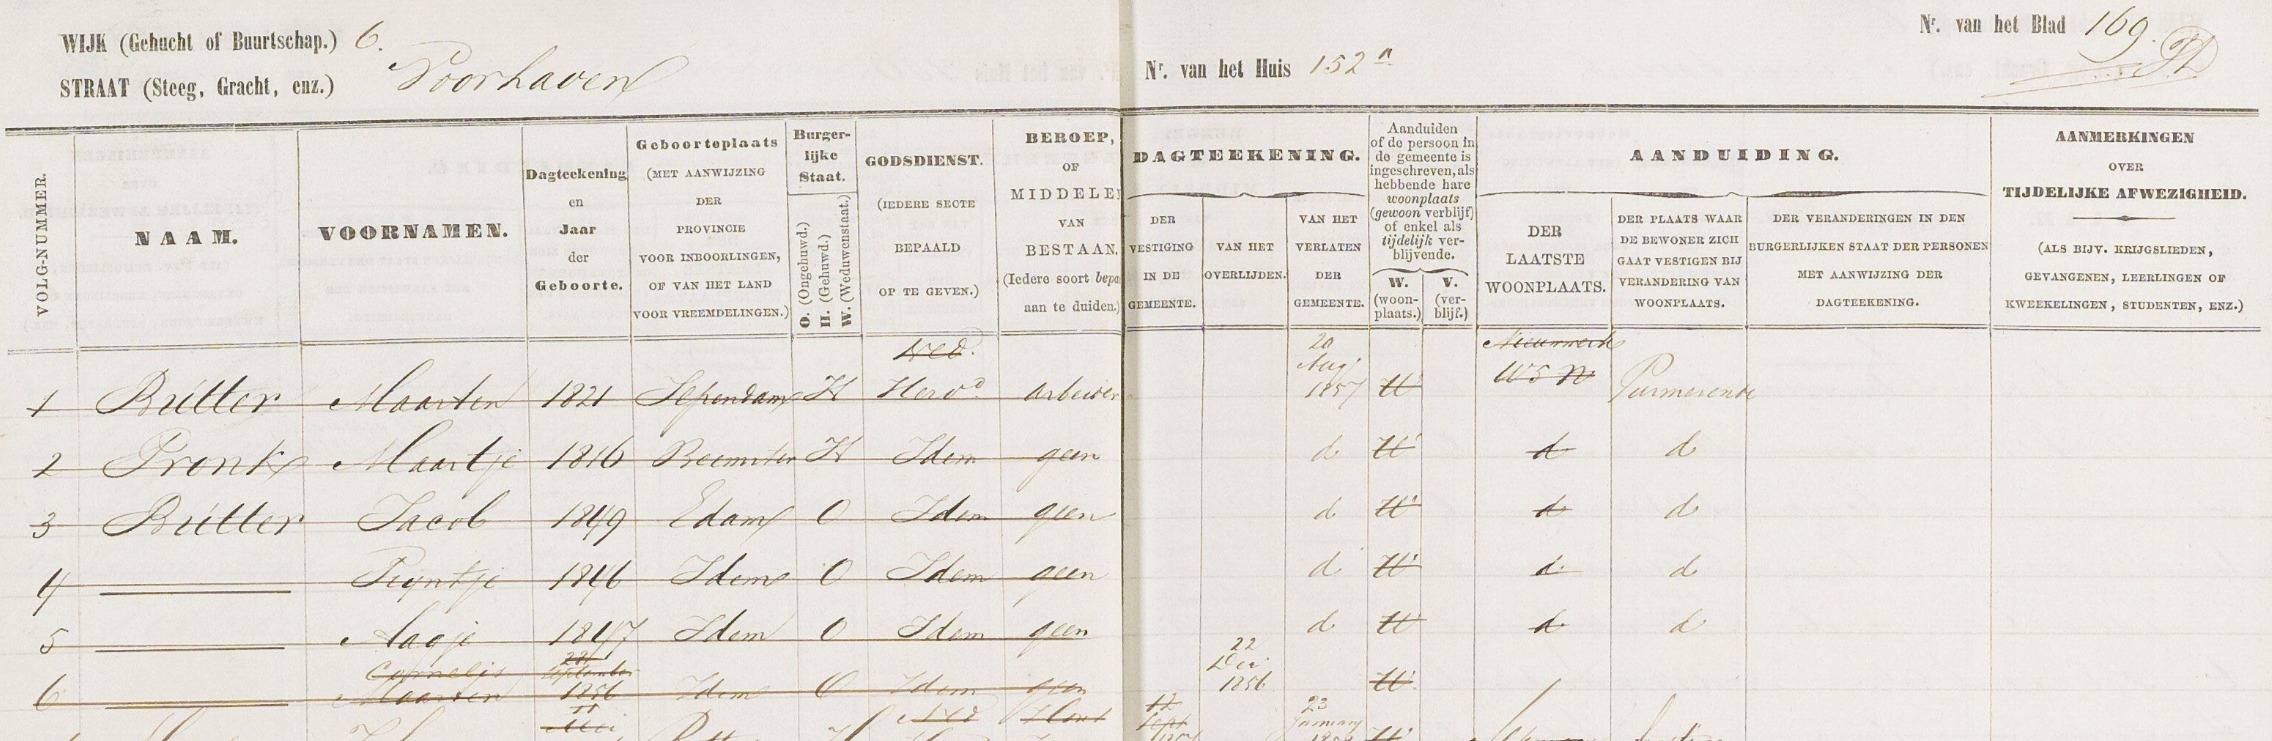 WIJK (Gehucht of Buurtschap.) 6.
STRAAT (Steeg, Gracht, enz.) Voorhaven
Nr. van het Huis 152 a
Nr. van het Blad 169.
VOLG-NUMMER.
NAAM.
VOORNAMEN.
Dagteekening
en
Jaar
der
Geboorte.
Geboorteplaats
(MET AANWIJZING
DER
PROVINCIE
VOOR INBOORLINGEN,
OF VAN HET LAND
VOOR VREEMDELINGEN.)
Burger-
lijke
Staat.
O. (Ongehuwd.)
H. (Gehuwd.)
W. (Weduwenstaat.)
GODSDIENST.
(IEDERE SECTE
BEPAALD
OP TE GEVEN.)
BEROEP,
OF
MIDDELE
VAN
BESTAAN.
(Iedere soort bepa
aan te duiden.)
DAGTEEKENING.
DER
VESTIGING
IN DE
GEMEENTE.
VAN HET
OVERLIJDEN.
VAN HET
VERLATEN
DER
GEMEENTE.
Aanduiden
of de persoon in
de gemeente is
ingeschreven, als
hebbende hare
woonplaats
(gewoon verblijf)
of enkel als
tijdelijk ver-
blijvende.
W.
(woon-
plaats.)
V.
(ver-
blijf.)
AANDUIDING.
DER
LAATSTE
WOONPLAATS.
DER PLAATS WAAR
DE BEWONER ZICH
GAAT VESTIGEN BIJ
VERANDERING VAN
WOONPLAATS.
DER VERANDERINGEN IN DEN
BURGERLIJKEN STAAT DER PERSONEN
MET AANWIJZING DER
DAGTEEKENING.
AANMERKINGEN
OVER
TIJDELIJKE AFWEZIGHEID.
(ALS BIJV. KRIJGSLIEDEN,
GEVANGENEN, LEERLINGEN OF
KWEEKELINGEN, STUDENTEN, ENZ.)
Ned. 20 Aug
1 Butter Maarten 1821 Ilpendam H Hervd arbeider 1857 W W5 N Purmerende
2 Pronk Maartje 1816 Beemster H Idem geen d W d d
3 Butter Jacob 1849 Edam O Idem geen d W d d
4 Pijntje 1846 Idem O Idem geen d W d d
5 Aagje 1847 Idem O Idem geen d W d d
Cornelis 28 September 22 Dec.
6 Maarten 1856 Idem O Idem geen 1856 W
11 Mei Ned 12 Sept 23 January